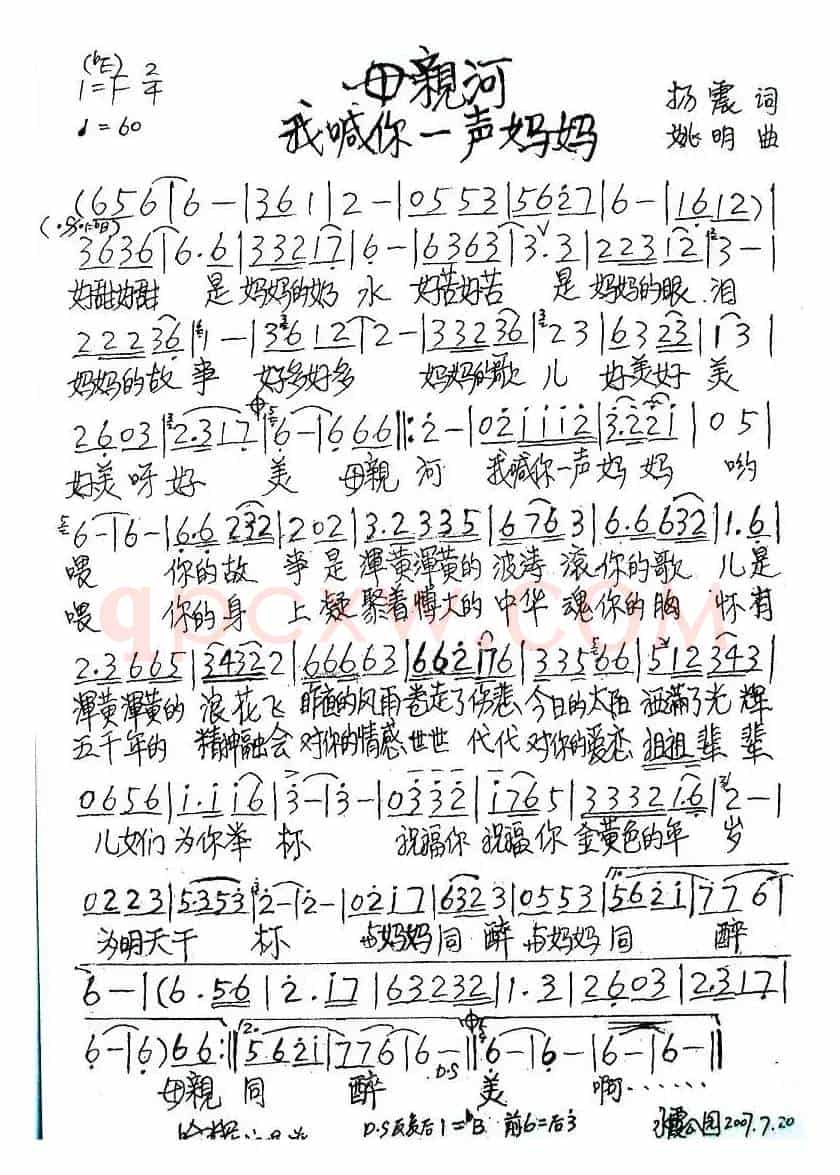 (♭E)
1=F 2/4
♩=60
母親河
我喊你一声妈妈
扬震 词
姚明 曲
(656|6-|361|2-|0553|5627|6-|1612)|
3636|6.6|33217|6-|6363|3.3|22312|3-|
好甜好甜 是 妈妈的奶 水 好苦好苦 是 妈妈的眼 泪
22236|1-|3612|2-|33236|23|6323|13|
妈妈的故 事 好多好多 妈妈的歌 儿 好美好 美
2603|2.317|6-|666||:2-|021112|3.221|05|
好美呀好 美 母親 河 我喊你一声妈 妈 哟
6-|6-|6.6232|202|3.2335|6763|6.6632|1.6|
喂 你的故 事 是 渾黄渾黄的 波涛 滚你的歌 儿是
喂 你的身 上 凝聚着博大的 中华 魂你的胸 怀有
2.3665|34322|666663|662176|33566|512343|
渾黄渾黄的 浪花飞 昨夜的风雨卷走了伤悲 今日的太阳 洒满了光 辉
五千年的 精神融会 对你的情感 世世 代代 对你的爱恋 祖祖辈 辈
0656|1.116|3-|3-|0332|1765|333216|2-|
儿女们 为你举 杯 祝福你 祝福你 金黄色的年 岁
0223|5353|2-|2-|0217|6323|0553|5621|776|
为明天干 杯 与妈妈同 醉 与妈妈同 醉
6-|(6.56|2.17|63232|1.3|2603|2.317|
6-|6)66:||5621|776|6-||6-|6-|6-|6-||
母親 同 醉 D.S 美 啊……
D.S反复后1=♭B 前6=后3
2007.7.20
qpcxw.com